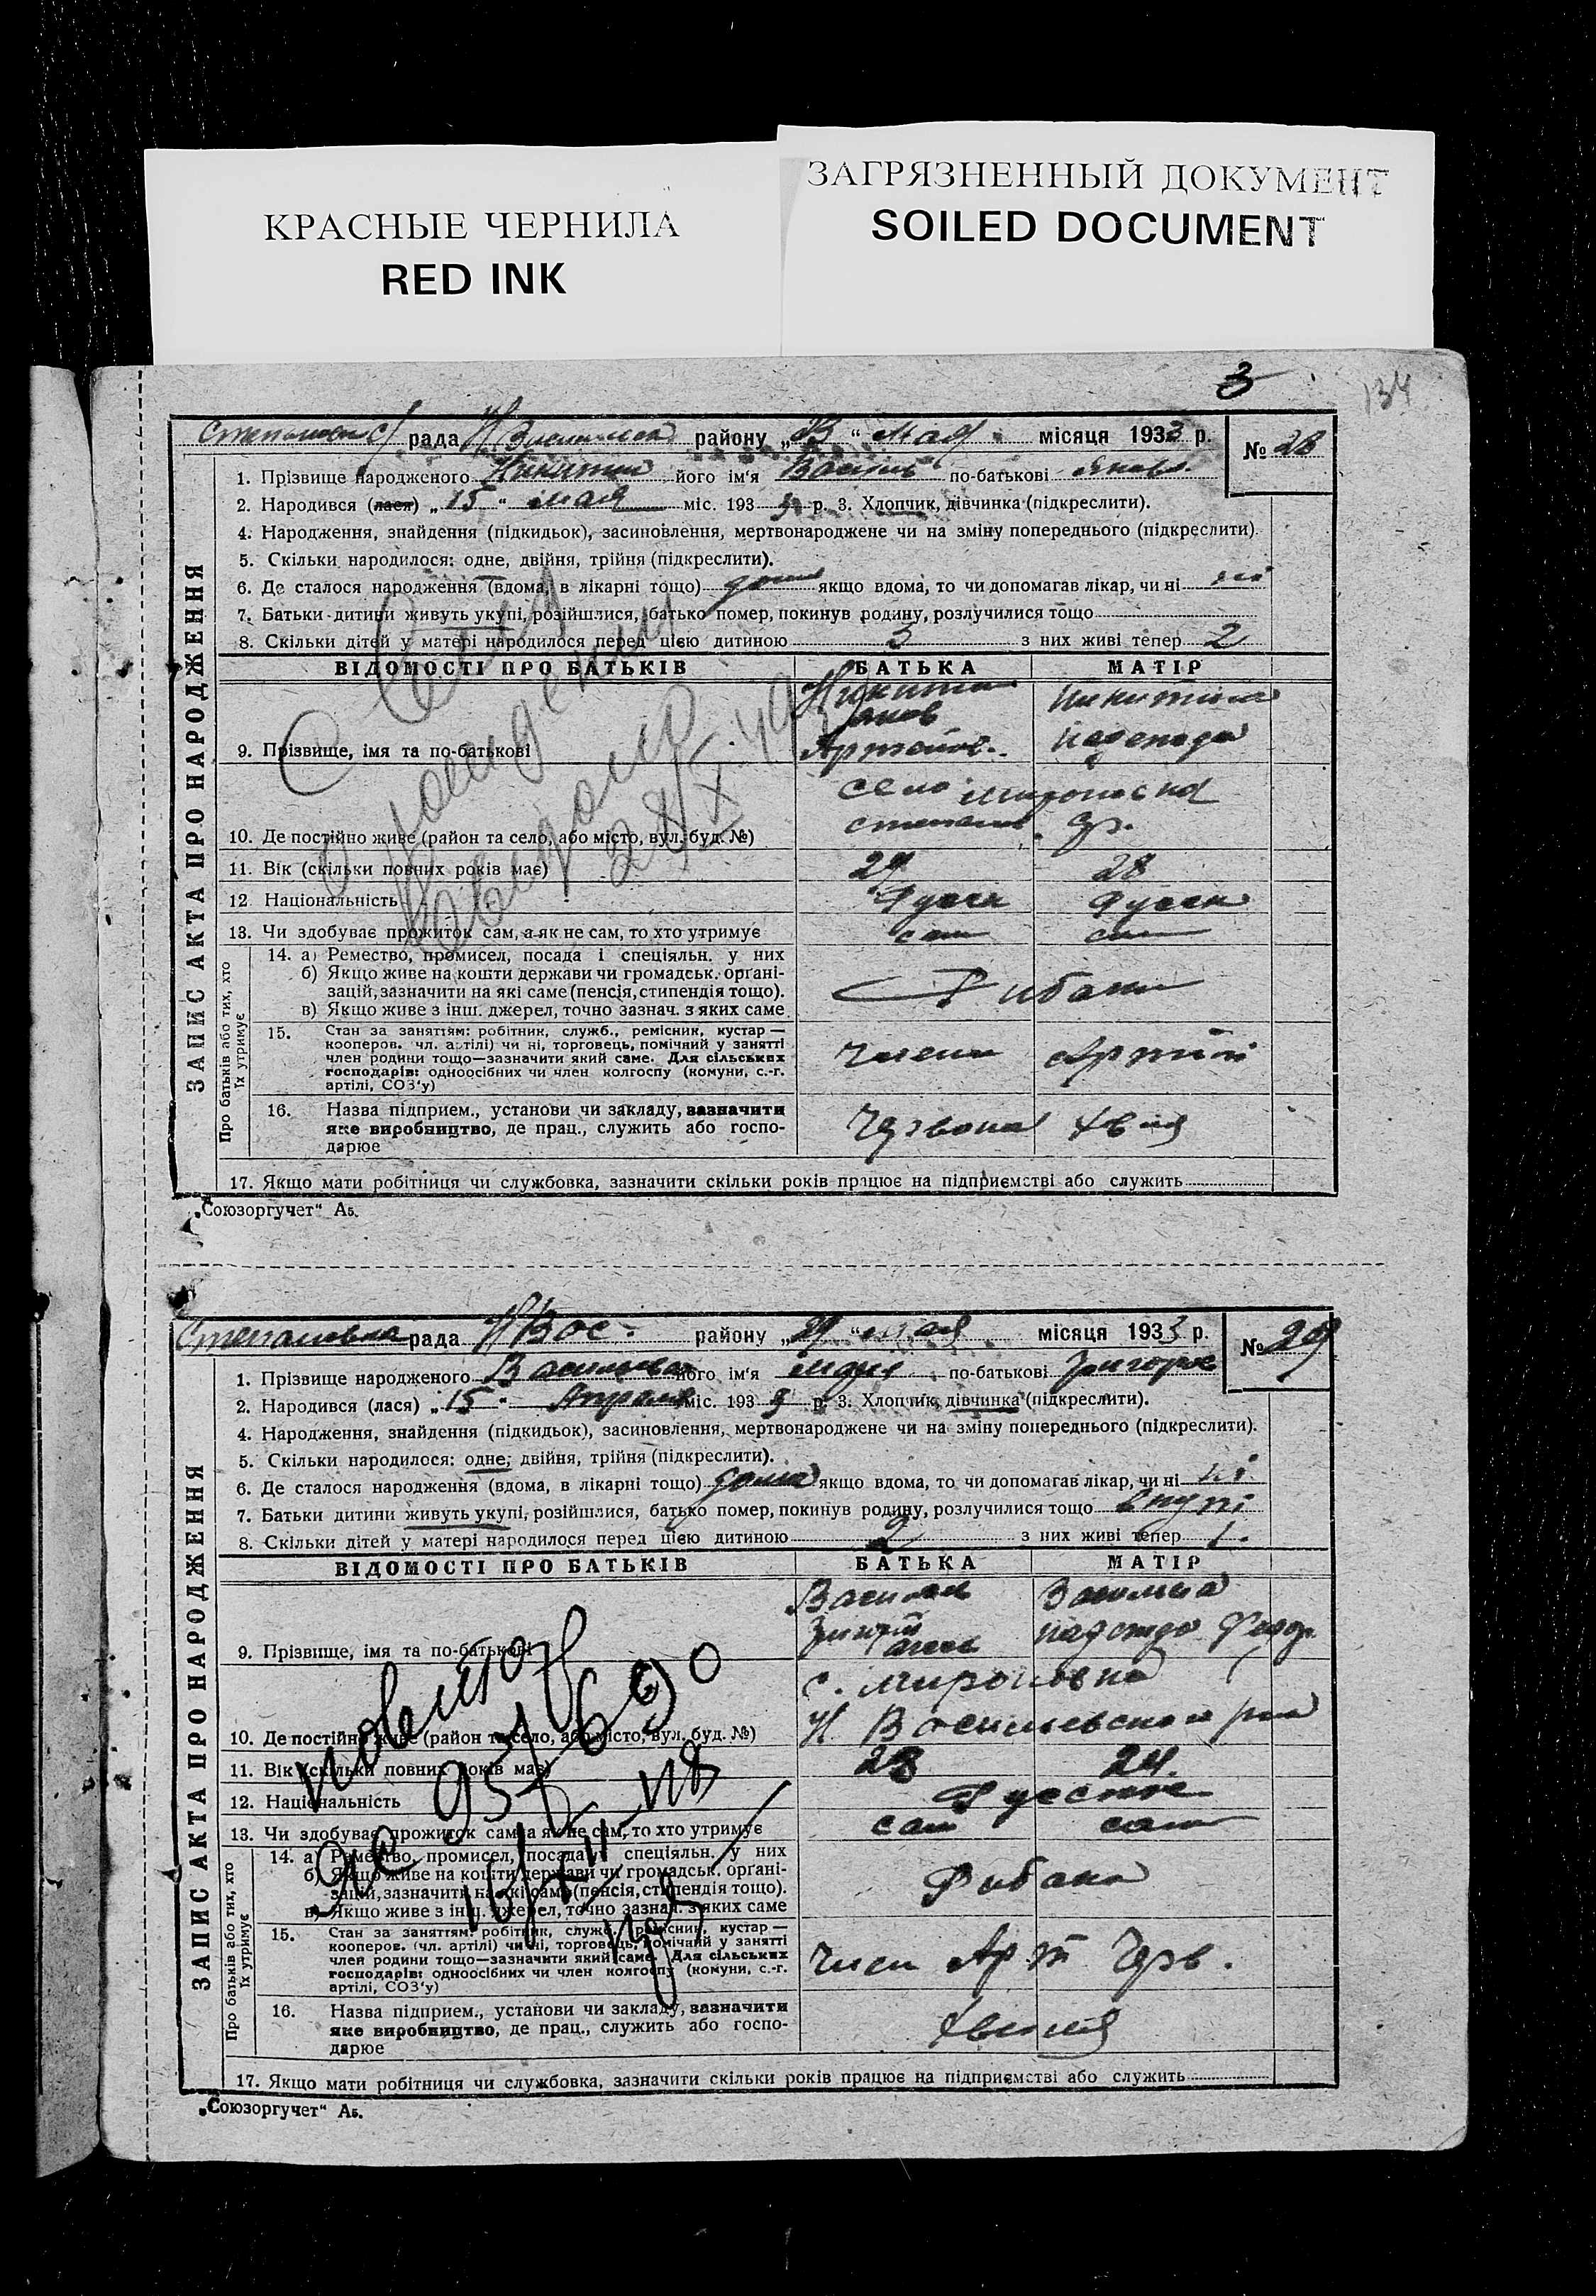 ЗАГРЯЗНЕННЫЙ ДОКУМЕНТ
SOILED DOCUMENT
КРАСНЫЕ ЧЕРНИЛА
RED INK
3
134
рада району „ “ мая місяця 1933 р. № 28
1. Прізвище народженого Никитин його ім'я Василь по-батькові Яковл.
2. Народився (лася) „15“ мая міс. 193 3 р. 3. Хлопчик, дівчинка (підкреслити).
4. Народження, знайдення (підкидьок), засиновлення, мертвонароджене чи на зміну попереднього (підкреслити).
5. Скільки народилося: одне, двійня, трійня (підкреслити).
6. Де сталося народження (вдома, в лікарні тощо) дома якщо вдома, то чи допомагав лікар, чи ні ні
7. Батьки дитини живуть укупі, розійшлися, батько помер, покинув родину, розлучилися тощо
8. Скільки дітей у матері народилося перед цією дитиною 3 з них живі тепер 2
ВІДОМОСТІ ПРО БАТЬКІВ БАТЬКА МАТІР
Никитин Никитина
Яков
9. Прізвище, імя та по-батькові Надежда
село
10. Де постійно живе (район та село, або місто, вул. буд. №)
11. Вік (скільки повних років має) 28
12 Національність
13. Чи здобуває прожиток сам, а як не сам, то хто утримує сам сам
14. а) Ремество, промисел, посада і спеціяльн. у них
б) Якщо живе на кошти держави чи громадськ. органі-
зацій, зазначити на які саме (пенсія, стипендія тощо).
в) Якщо живе з інш. джерел, точно зазнач. з яких саме
Рибаки
15. Стан за заняттям: робітник, служб., ремісник, кустар —
кооперов. чл. артілі) чи ні, торговець, помічний у занятті
член родини тощо—зазначити який саме. Для сільських
господарів: одноосібних чи член колгоспу (комуни, с.-г.
артілі, СОЗ'у)
члени Артілі
16. Назва підприєм., установи чи закладу, зазначити
яке виробництво, де прац., служить або госпо-
дарює
Червона хвиля
17. Якщо мати робітниця чи службовка, зазначити скільки років працює на підприємстві або служить
ЗАПИС АКТА ПРО НАРОДЖЕННЯ
Про батьків або тих, хто їх утримує
„Союзоргучет“ А5.
Степановка рада Н Вос. району „29“ мая місяця 1933 р. № 29
1. Прізвище народженого Васильева його ім'я по-батькові Григоров
2. Народився (лася) „15“ Апреля міс. 193 3 р. 3. Хлопчик, дівчинка (підкреслити).
4. Народження, знайдення (підкидьок), засиновлення, мертвонароджене чи на зміну попереднього (підкреслити).
5. Скільки народилося: одне, двійня, трійня (підкреслити).
6. Де сталося народження (вдома, в лікарні тощо) дома якщо вдома, то чи допомагав лікар, чи ні ні
7. Батьки дитини живуть укупі, розійшлися, батько помер, покинув родину, розлучилися тощо вкупі
8. Скільки дітей у матері народилося перед цією дитиною 2 з них живі тепер 1.
ВІДОМОСТІ ПРО БАТЬКІВ БАТЬКА МАТІР
Васильев Васильева
9. Прізвище, імя та по-батькові Надежда Федор.
с. Мироновка
10. Де постійно живе (район та село, або місто, вул. буд. №) Н Васильевского р-на
11. Вік (скільки повних років має) 28 24.
12. Національність Русские
13. Чи здобуває прожиток сам, а як не сам, то хто утримує сам сам
14. а) Ремество, промисел, посада і спеціяльн. у них
б) Якщо живе на кошти держави чи громадськ. органі-
зацій, зазначити на які саме (пенсія, стипендія тощо).
в) Якщо живе з інш. джерел, точно зазнач. з яких саме
Рибаки
15. Стан за заняттям: робітник, служб., ремісник, кустар —
кооперов. (чл. артілі) чи ні, торговець, помічний у занятті
член родини тощо—зазначити який саме. Для сільських
господарів: одноосібних чи член колгоспу (комуни, с.-г.
артілі, СОЗ'у)
члени Арт Черв.
16. Назва підприєм., установи чи закладу, зазначити
яке виробництво, де прац., служить або госпо-
дарює
хвиля
17. Якщо мати робітниця чи службовка, зазначити скільки років працює на підприємстві або служить
ЗАПИС АКТА ПРО НАРОДЖЕННЯ
Про батьків або тих, хто їх утримує
„Союзоргучет“ А5.